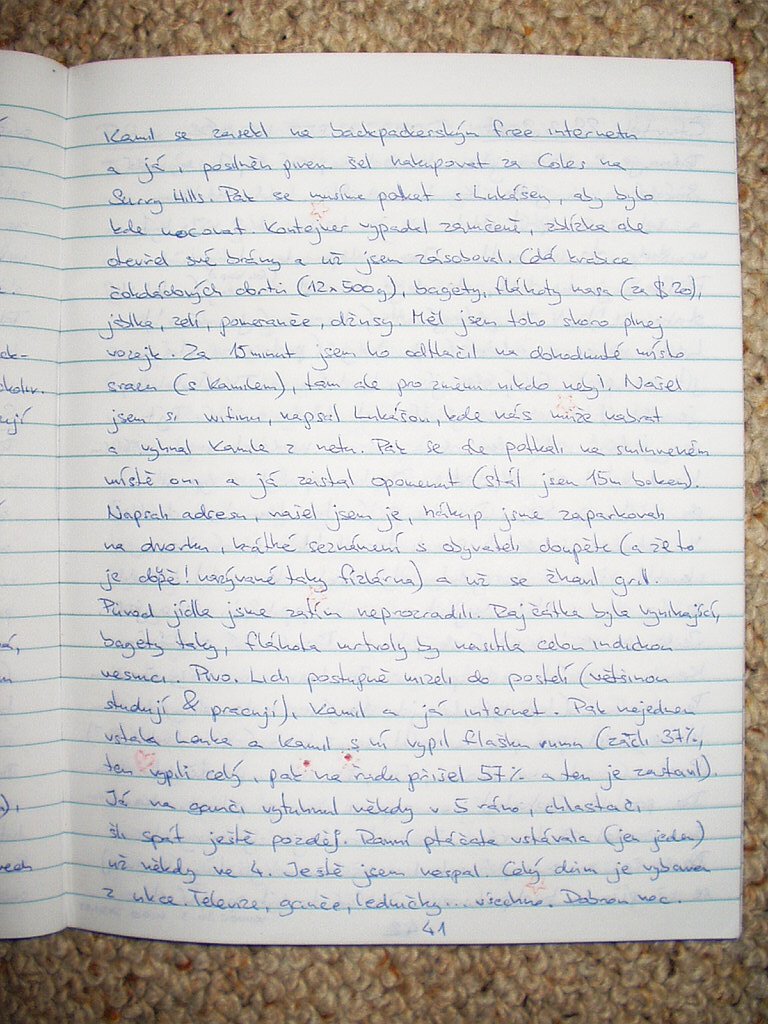 Kamil se zasekl na backpackerským free internetu
a já, posilněn pivem šel nakupovat za Coles na
Surry Hills. Pak se musíme potkat s Lukášem, aby bylo
kde nocovat. Kontejner vypadal zamčeně, zblízka ale
otevřel své brány a už jsem zásoboval. Celá krabice
čokoládových dortů (12x500g), bagety, flákoty masa (za $20),
jablka, zelí, pomeranče, džusy. Měl jsem toho skoro plnej
vozejk. Za 15 minut jsem ho odtlačil na dohodnuté místo
srazu (s Kamilem), tam ale pro změnu nikdo nebyl. Našel
jsem si wifinu, napsal Lukášovi, kde nás může nabrat
a vyhnal Kamila z netu. Pak se ale potkali na smluveném
místě oni a já zůstal opomenut (stál jsem 15m bokem).
Napsali adresu, našel jsem je, nákup jsme zaparkovali
na dvorku, krátké seznámení s obyvateli doupěte (a že to
je dópě! nazývané taky fízlárna) a už se žhavil gril.
Původ jídla jsme zatím neprozradili. Rajčátka byla vynikající,
bagety taky, flákota mrtvoly by nasitila celou indickou
vesnici. Pivo. Lidi postupně mizeli do postelí (většinou
studují & pracují), Kamil a já internet. Pak najednou
vstala Lenka a Kamil s ní vypil flašku rumu (začli 37%,
ten vypili celý, pak na řadu přišel 57% a ten je zastavil).
Já na gauči vytuhnul někdy v 5 ráno, chlastači
šli spát ještě později. Ranní ptáčata vstávala (jen jeden)
už někdy ve 4. Ještě jsem nespal. Celý dům je vybaven
z ulice. Televize, gauče, ledničky... všechno. Dobrou noc.
41